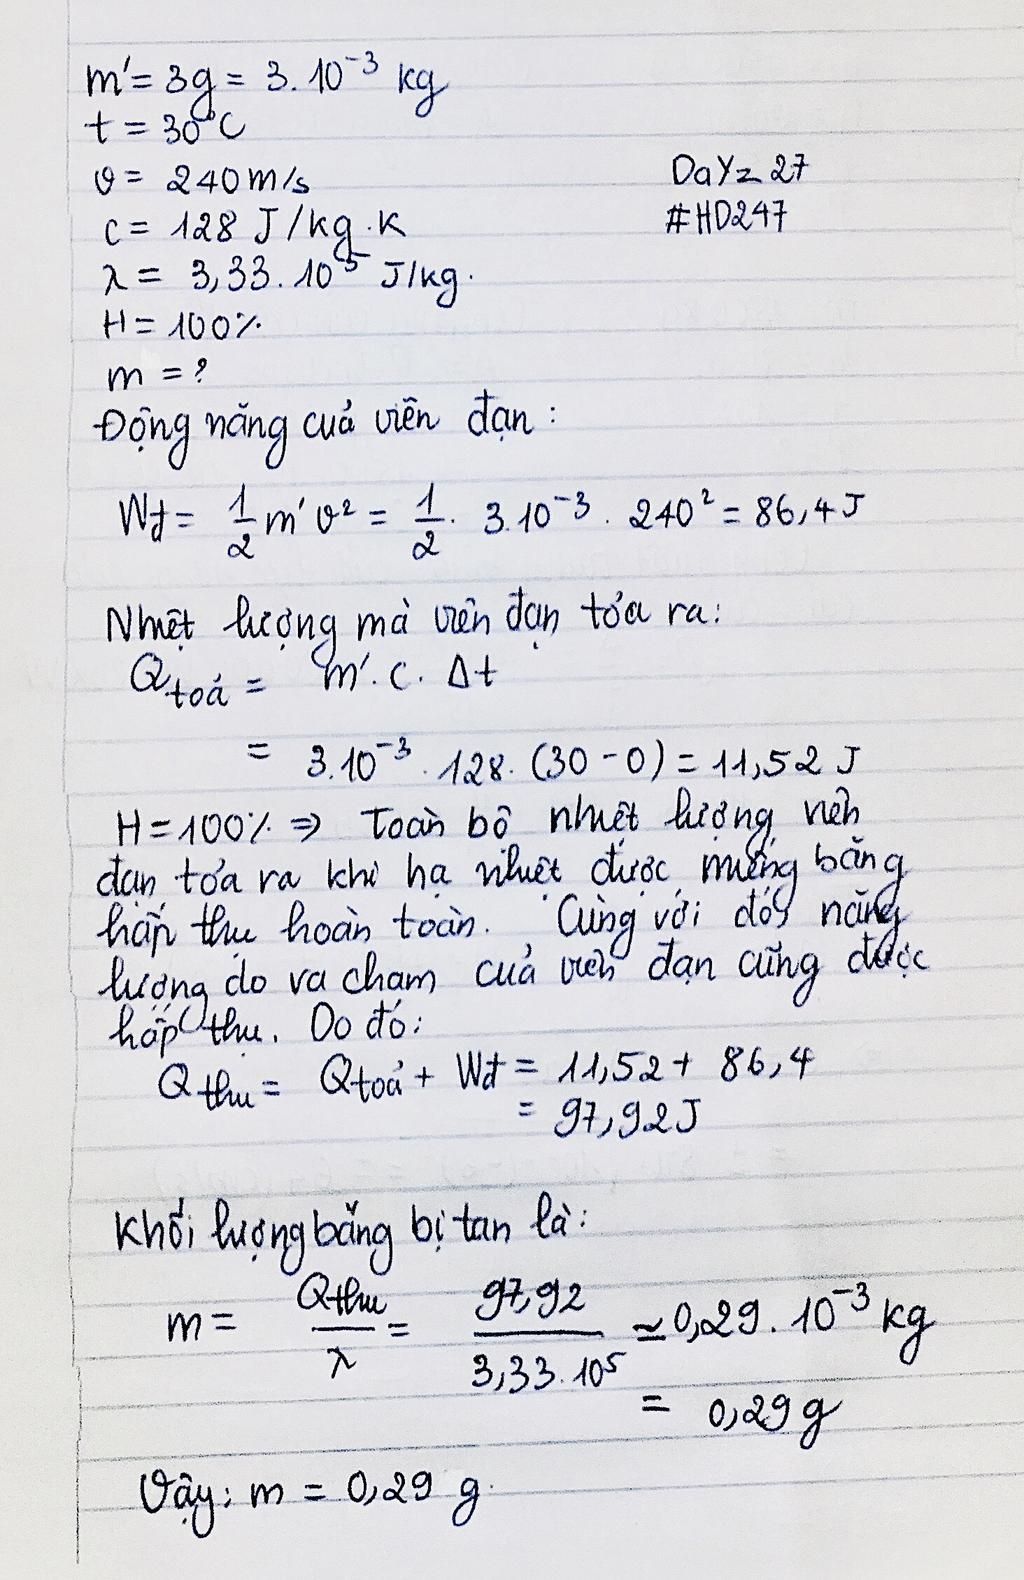 m' = 3g = 3.10⁻³ kg
t = 30°C
v = 240 m/s
DaYz 27
c = 128 J/kg.K
#HD247
λ = 3,33.10⁵ J/kg.
H = 100%
m = ?
Động năng cuả viên đạn:
Wđ = 1/2 m'v² = 1/2 . 3.10⁻³ . 240² = 86,4 J
Nhiệt lượng mà viên đạn tỏa ra:
Qtoả = m'.c.Δt
= 3.10⁻³ . 128. (30 - 0) = 11,52 J
H = 100% ⇒ Toàn bộ nhiệt lượng viên
đạn tỏa ra khi hạ nhiệt được miếng băng
hấp thụ hoàn toàn. Cùng với đó, năng
lượng do va chạm cuả viên đạn cũng được
hấp thụ. Do đó:
Qthu = Qtoả + Wđ = 11,52 + 86,4
= 97,92 J
Khối lượng băng bị tan là:
m = Qthu/λ = 97,92/3,33.10⁵ ≃ 0,29.10⁻³ kg
= 0,29 g
Vậy: m = 0,29 g.